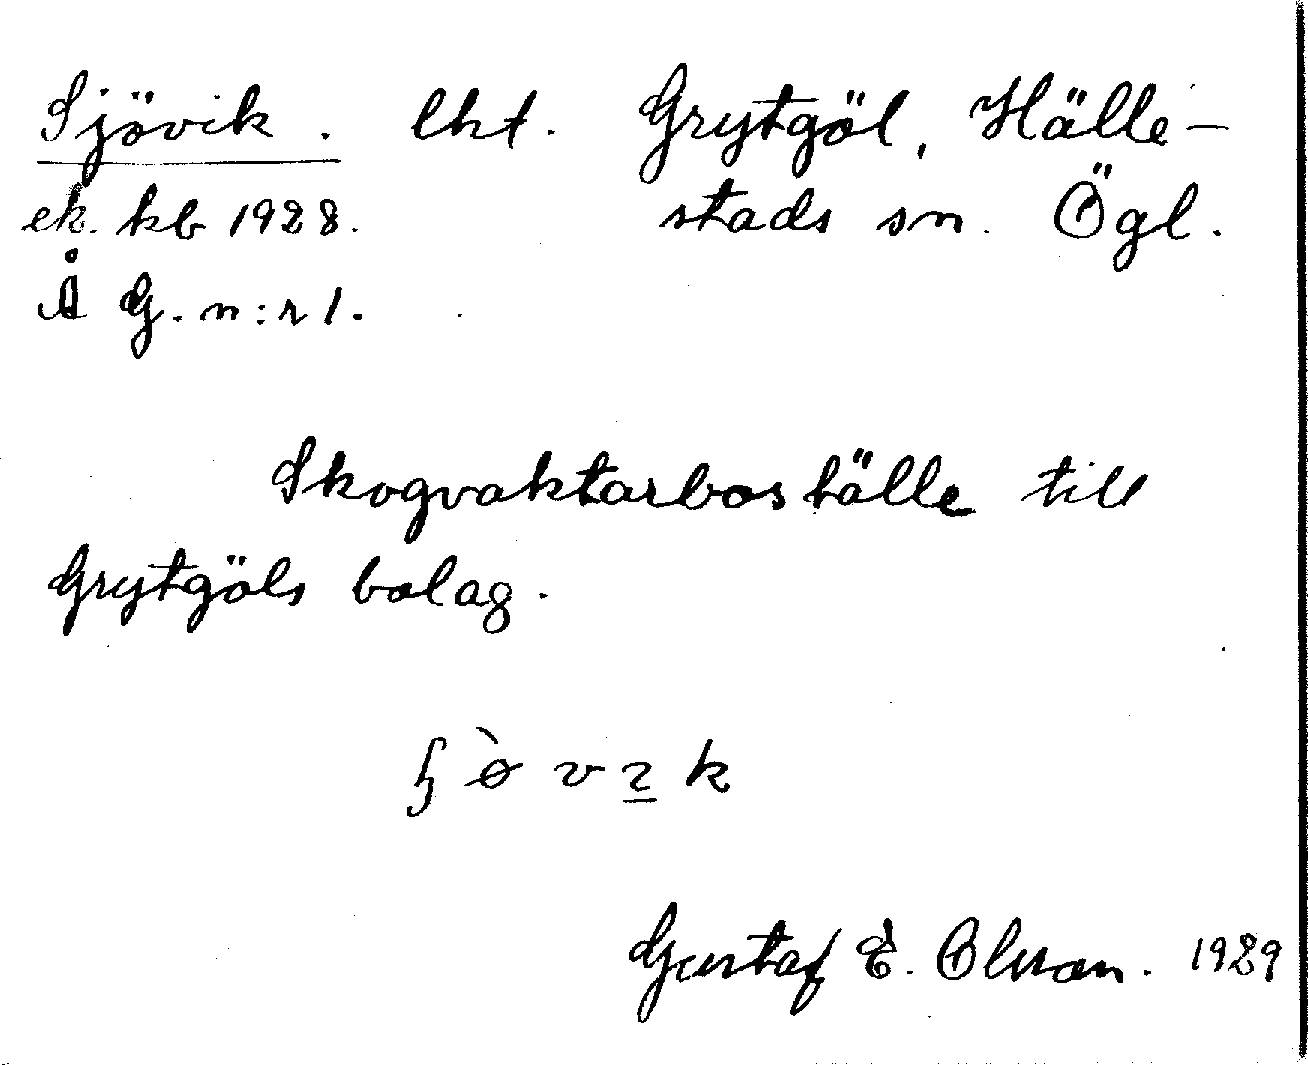 Sjövik. lht. Grytgöl, Hälle-
ek. kb 1928. stads sn. Ögl.
Å G. n:r 1.
Skogvaktarboställe till
Grytgöls bolag.
Gustaf E. Olsson. 1929